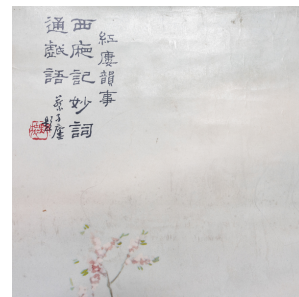 紅廔韻事
西廂記妙詞
通戲語